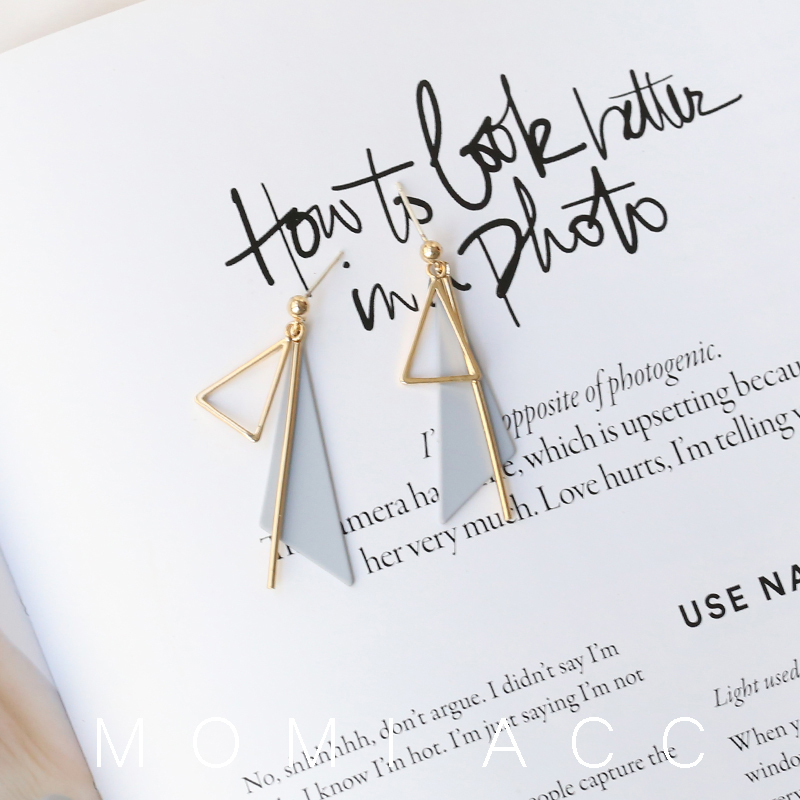 How to look better
in photo
I'm opposite of photogenic.
camera ha e, which is upsetting becau
her very much. Love hurts, I'm telling y
USE NA
No, shhhhhh, don't argue. I didn't say I'm
I know I'm hot. I'm just saying I'm not
ople capture the
Light used
When y
windo
very
MOMI ACC